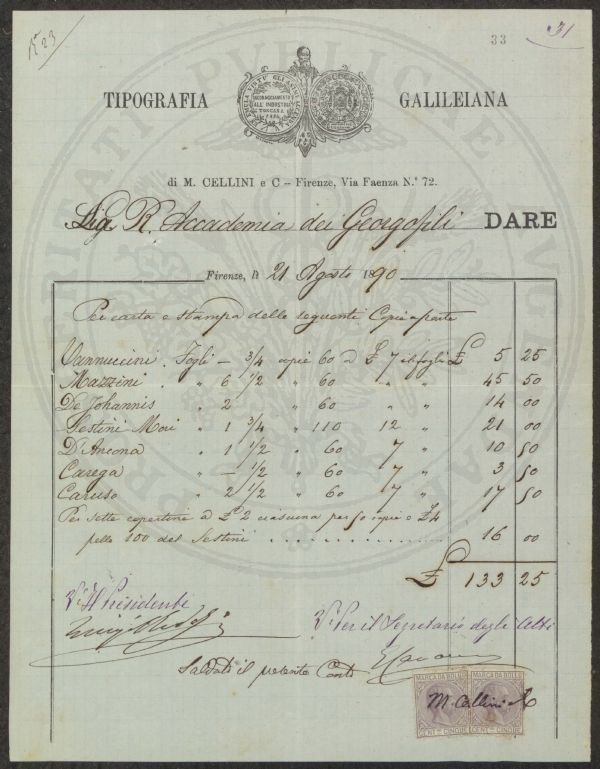 33
31
TIPOGRAFIA GALILEIANA
di M. CELLINI e C – Firenze, Via Faenza N.° 72.
Sig. R. Accademia dei Georgofili DARE
Firenze, li 21 Agosto 1890
Per carta e stampa delle seguenti Copie a parte
Vannuccini. Fogli — 3/4 copie 60 a £ 7 il foglio £ 5 25
Mazzini . " 6 1/2 " 60 " " 45 50
De Johannis " 2 " 60 " " 14 00
Sestini Mori " 1 3/4 " 110 12 " 21 00
D'Ancona " 1 1/2 " 60 7 " 10 50
Carega " — 1/2 " 60 7 " 3 50
Caruso " 2 1/2 " 60 7 " 17 50
Per sette copertine a £ 2 ciascuna per 50 copie e £ 4
pelle 100 del Sestini 16 00
£ 133 25
V° Il Presidente
V° Per il Segretario degli Atti
Saldato il presente Conto
MARCA DA BOLLO MARCA DA BOLLO
M. Cellini e C
CENT.MI CINQUE CENT.MI CINQUE